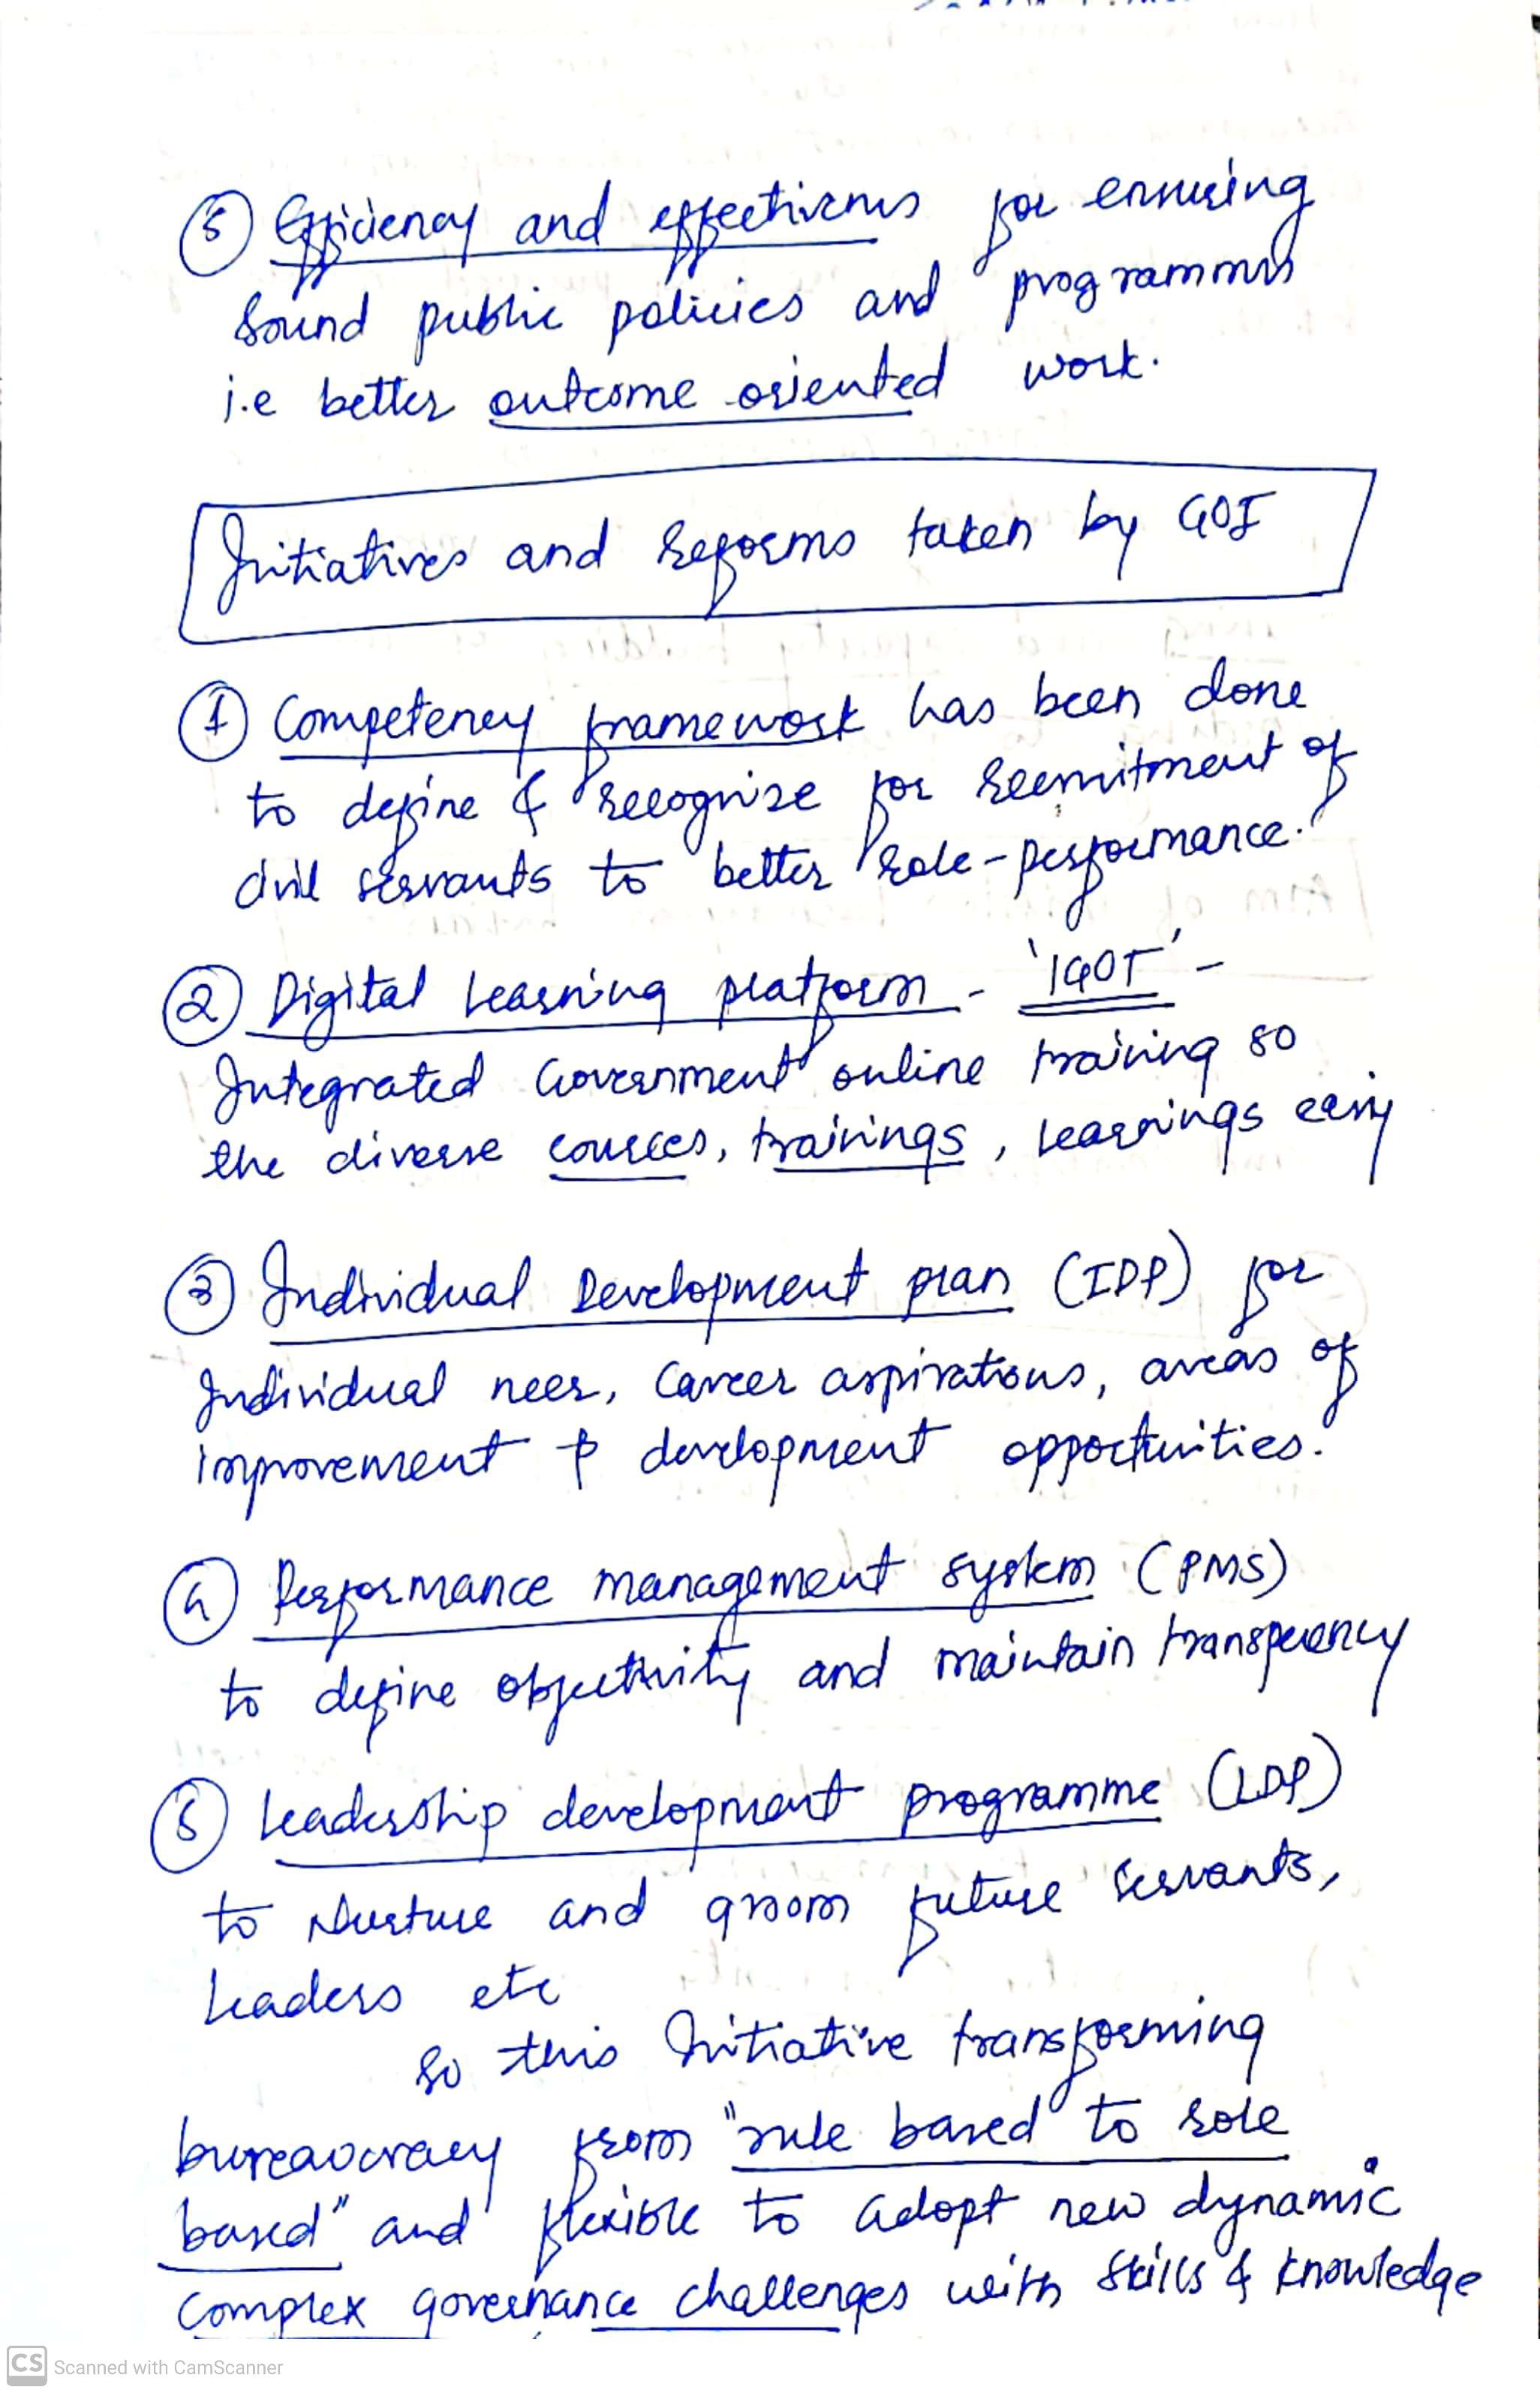 5 Efficiency and effectiveness for ensuring
sound public policies and programmes
i.e better outcome oriented work.
Initiatives and Reforms taken by GOI
1 Competency framework has been done
to define & recognize for recruitment of
civil servants to better role-performance.
2 Digital Learning platform - 'IGOT' -
Integrated Government online training so
the diverse cources, trainings, learnings easy
3 Individual Development plan (IDP) for
Individual neer, Career aspirations, areas of
improvement & development opportunities.
4 Performance management system (PMS)
to define objectivity and maintain transperency
5 Leadership development programme (LDP)
to Nurture and groom future servants,
leaders etc
So this Initiative transforming
bureaucracy from "rule based to role
based" and flexible to adopt new dynamic
complex governance challenges with skills & knowledge
CS Scanned with CamScanner